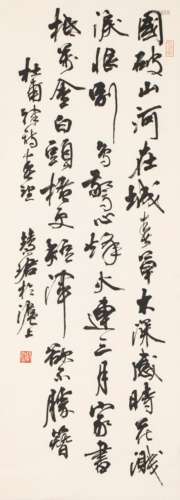 國破山河在城春草木深感時花濺
淚恨別鳥驚心烽火連三月家書
抵萬金白頭搔更短渾欲不勝簪
杜甫律詩春望 於滬上